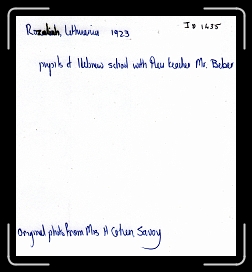 Rozaliah, Lithuania 1923 ID 1435
pupils of Hebrew school with their teacher Mr. Beber
Original photo from Mrs H Cohen Savoy